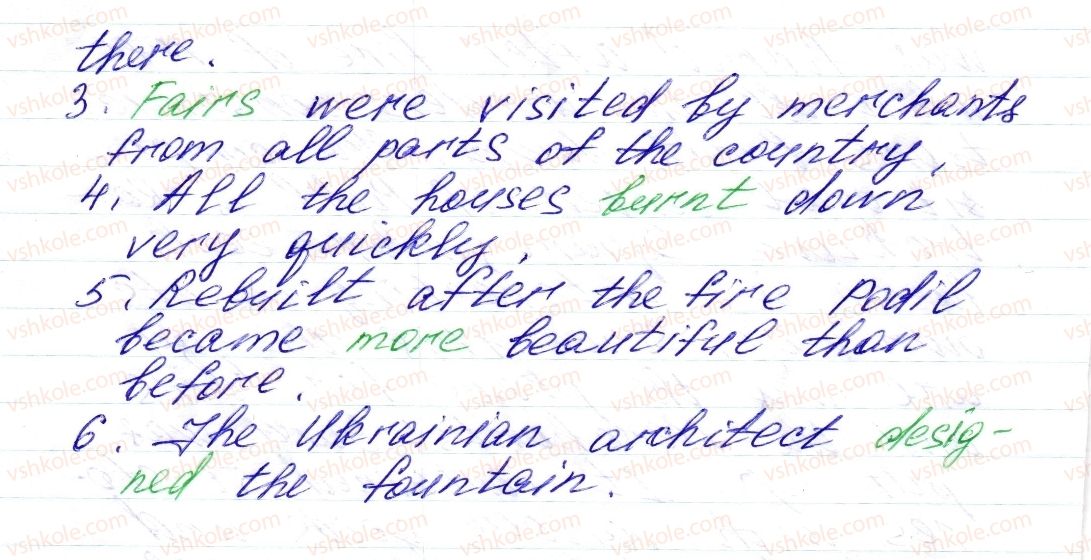 there.
3. Fairs were visited by merchants
from all parts of the country,
4. All the houses burnt down
very quickly.
5. Rebuilt after the fire Podil
became more beautiful than
before.
6. The Ukrainian architect desig-
ned the fountain.